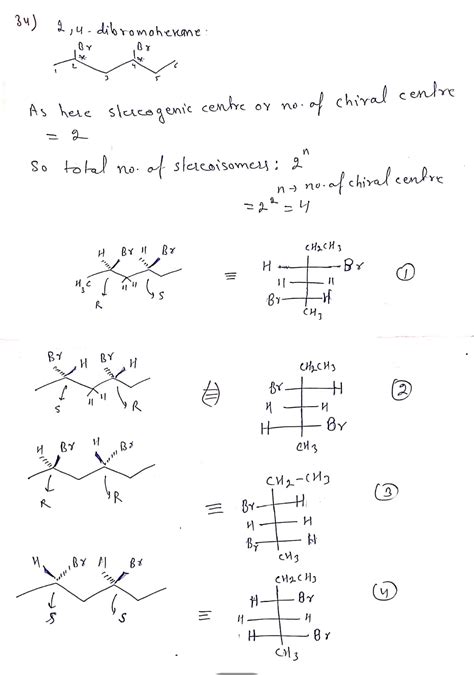 34) 2,4-dibromohexane.
Br Br
* *
1 2 3 4 5 6
As here stereogenic centre or no. of chiral centre
= 2
So total no. of stereoisomers: 2^n
n → no. of chiral centre
= 2^2 = 4
H Br H Br
H3C H H
R S
≡
CH2CH3
H Br
H H
Br H
CH3
①
Br H Br H
H H
S R
≡
CH2CH3
Br H
H H
H Br
CH3
②
H Br H Br
R R
≡
CH2-CH3
Br H
H H
Br H
CH3
③
H Br H Br
S S
≡
CH2CH3
H Br
H H
H Br
CH3
④